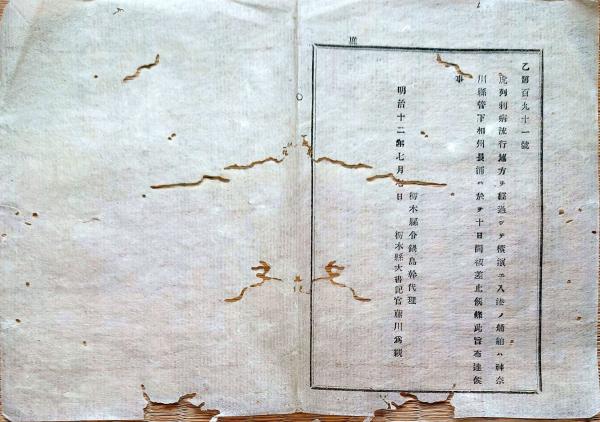 乙第百九十一號
虎列刺病流行地方ヲ經過シテ横濱ニ入港ノ船舶ハ神奈
川縣管下相州長浦ニ於テ十日間被差止候條此旨布達候
事
明治十二年七月 日
栃木縣令鍋島幹代理
栃木縣大書記官藤川爲親